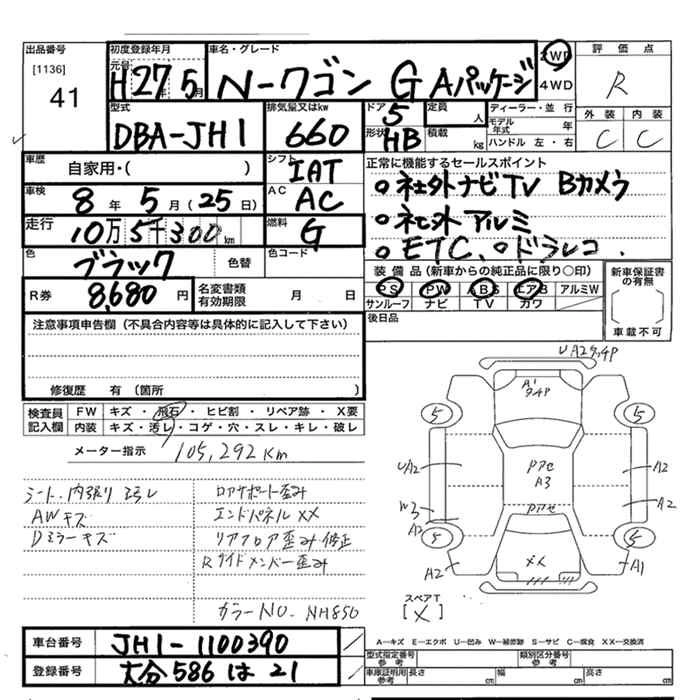 出品番号
[1136]
41
初度登録年月
元号
H27年5月
車名・グレード
N-ワゴン G Aパッケージ
2WD
4WD
評価点
R
外装 内装
C C
型式
DBA-JH1
排気量又はkw
660
ドア
5
形状
HB
定員
人
積載
kg
ディーラー・並行
モデル年式 年
ハンドル 左・右
車歴
自家用・( )
シフト
IAT
車検
8年5月(25日)
AC
AC
走行
10万5千300km
燃料
G
色
ブラック
色替
色コード
R券
8,680円
名変書類有効期限 月 日
正常に機能するセールスポイント
○社外ナビTV Bカメラ
○社外アルミ
○ETC.○ドラレコ.
装備品(新車からの純正品に限り○印)
PS PW ABS エアB アルミW
サンルーフ ナビ TV カワ
新車保証書の有無
[ ]
車載不可
後日品
注意事項申告欄(不具合内容等は具体的に記入して下さい)
修復歴 有(箇所
検査員記入欄
FW キズ・飛石・ヒビ割・リペア跡・X要
内装 キズ・汚レ・コゲ・穴・スレ・キレ・破レ
メーター指示 105,292Km
シート.内張り ヨゴレ
AWキズ
Dミラーキズ
ロアサポート歪み
エンドパネルXX
リアフロア歪み修正
Rサイドメンバー歪み
カラーNO. NH850
UA2 タッチP
A1
タッチP
5
5
UA2
W3
A2
5
A2
PアセA3
Pアセ
XX
A2
A2
5
A1
スペアT
[X]
A-キズ E-エクボ U-凹み W-補修跡 S-サビ C-腐食 XX-交換済
車台番号
JH1-1100390
登録番号
大分586は21
型式指定番号
参考
類別区分番号
参考
車庫証明用
参考
長さ cm
幅 cm
高さ cm